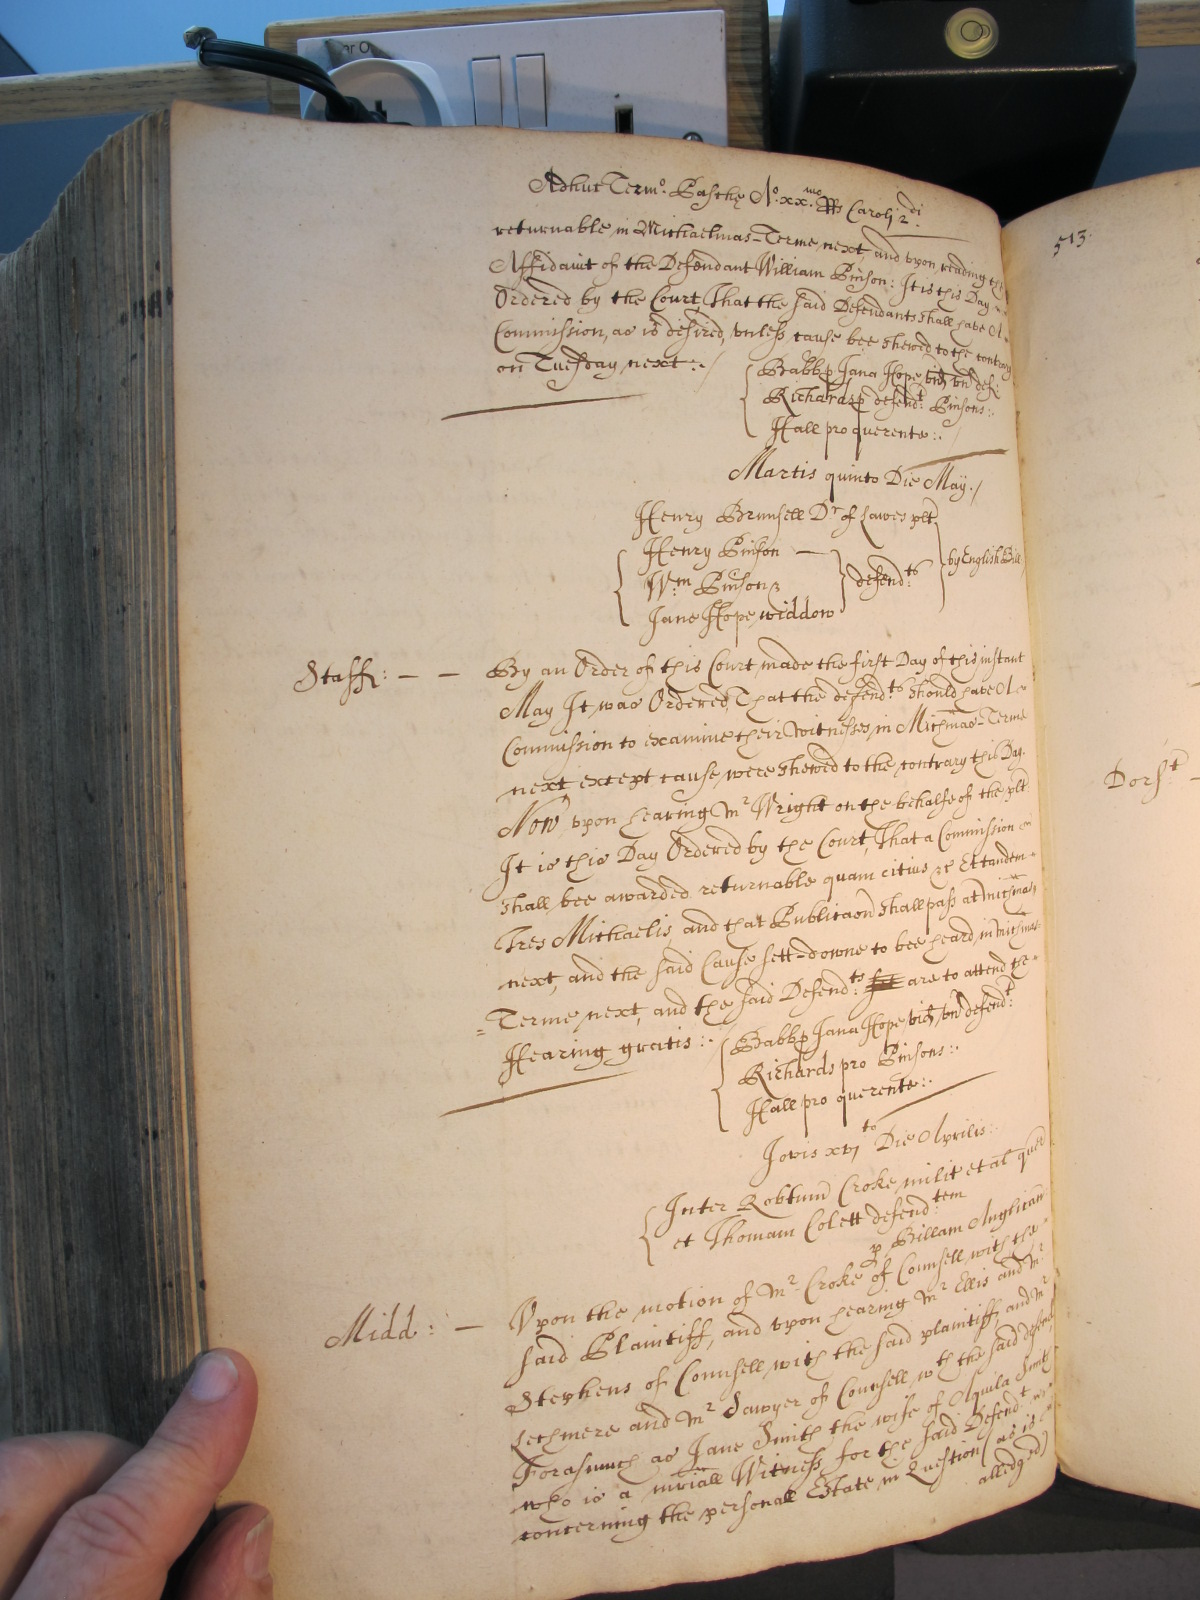 Adhuc Term.o Paschę A.o xx.mo Rs Carolj 2.di
returnable in Michaelmas-Terme next, and vpon reading the
Affidavit of the Defendant William Pinson: It is this Day
Ordered by the Court, That the said Defendants shall have A
Commission, as is desired, vnless cause bee shewed to the contrary
on Tuesday next:./
Babb p Jana Hope vid vn def:
Richards p defend.t Pinsons:.
Hall pro querente:.
Martis quinto Die Maÿ./
Henry Brunsell D.r of Lawes plt.
Henry Pinson —
W.m Pinson &
Jane Hope widdow
defend.ts
by English Bill
Staff: — — By an Order of this Court made the first Day of this instant
May It was Ordered, That the defend.ts should have A
Commission to examine their Witnesses in Michmas-Terme
next except cause were shewed to the contrary this Day.
Now vpon hearing M.r Wright on the behalfe of the plt.
It is this Day Ordered by the Court, That a Commission
shall bee awarded returnable quam citius &c Et tandem
Tres Michaelis, and that Publicaon shall pass at Michmas,
next, and the said Cause sett-downe to bee heard in Michmas
Terme next, and the said Defend.ts are to attend the
Hearing gratis:.
Babb p Jana Hope vid, vn defend.t:
Richards pro Pinsons:.
Hall pro querente:.
Jovis xvj.to Die Aprilis:.
Inter Robtum Croke milit et al quer
et Thomam Colett defend.tem
p. Billam Anglicam
Midd: — Vpon the motion of M.r Croke of Counsell with the
said Plaintiff, and vpon hearing M.r Ellis and M.r
Stephens of Counsell with the said plaintiff, and M.r
Lechmere and M.r Sawyer of Counsell w.th the said defend
Forasmuch as Jane Smith the wife of Aquila Smith
who is a mriall Witness for the said Defend.t
concerning the personall Estate in Question (as is
alledged)
513.
Dors.t —